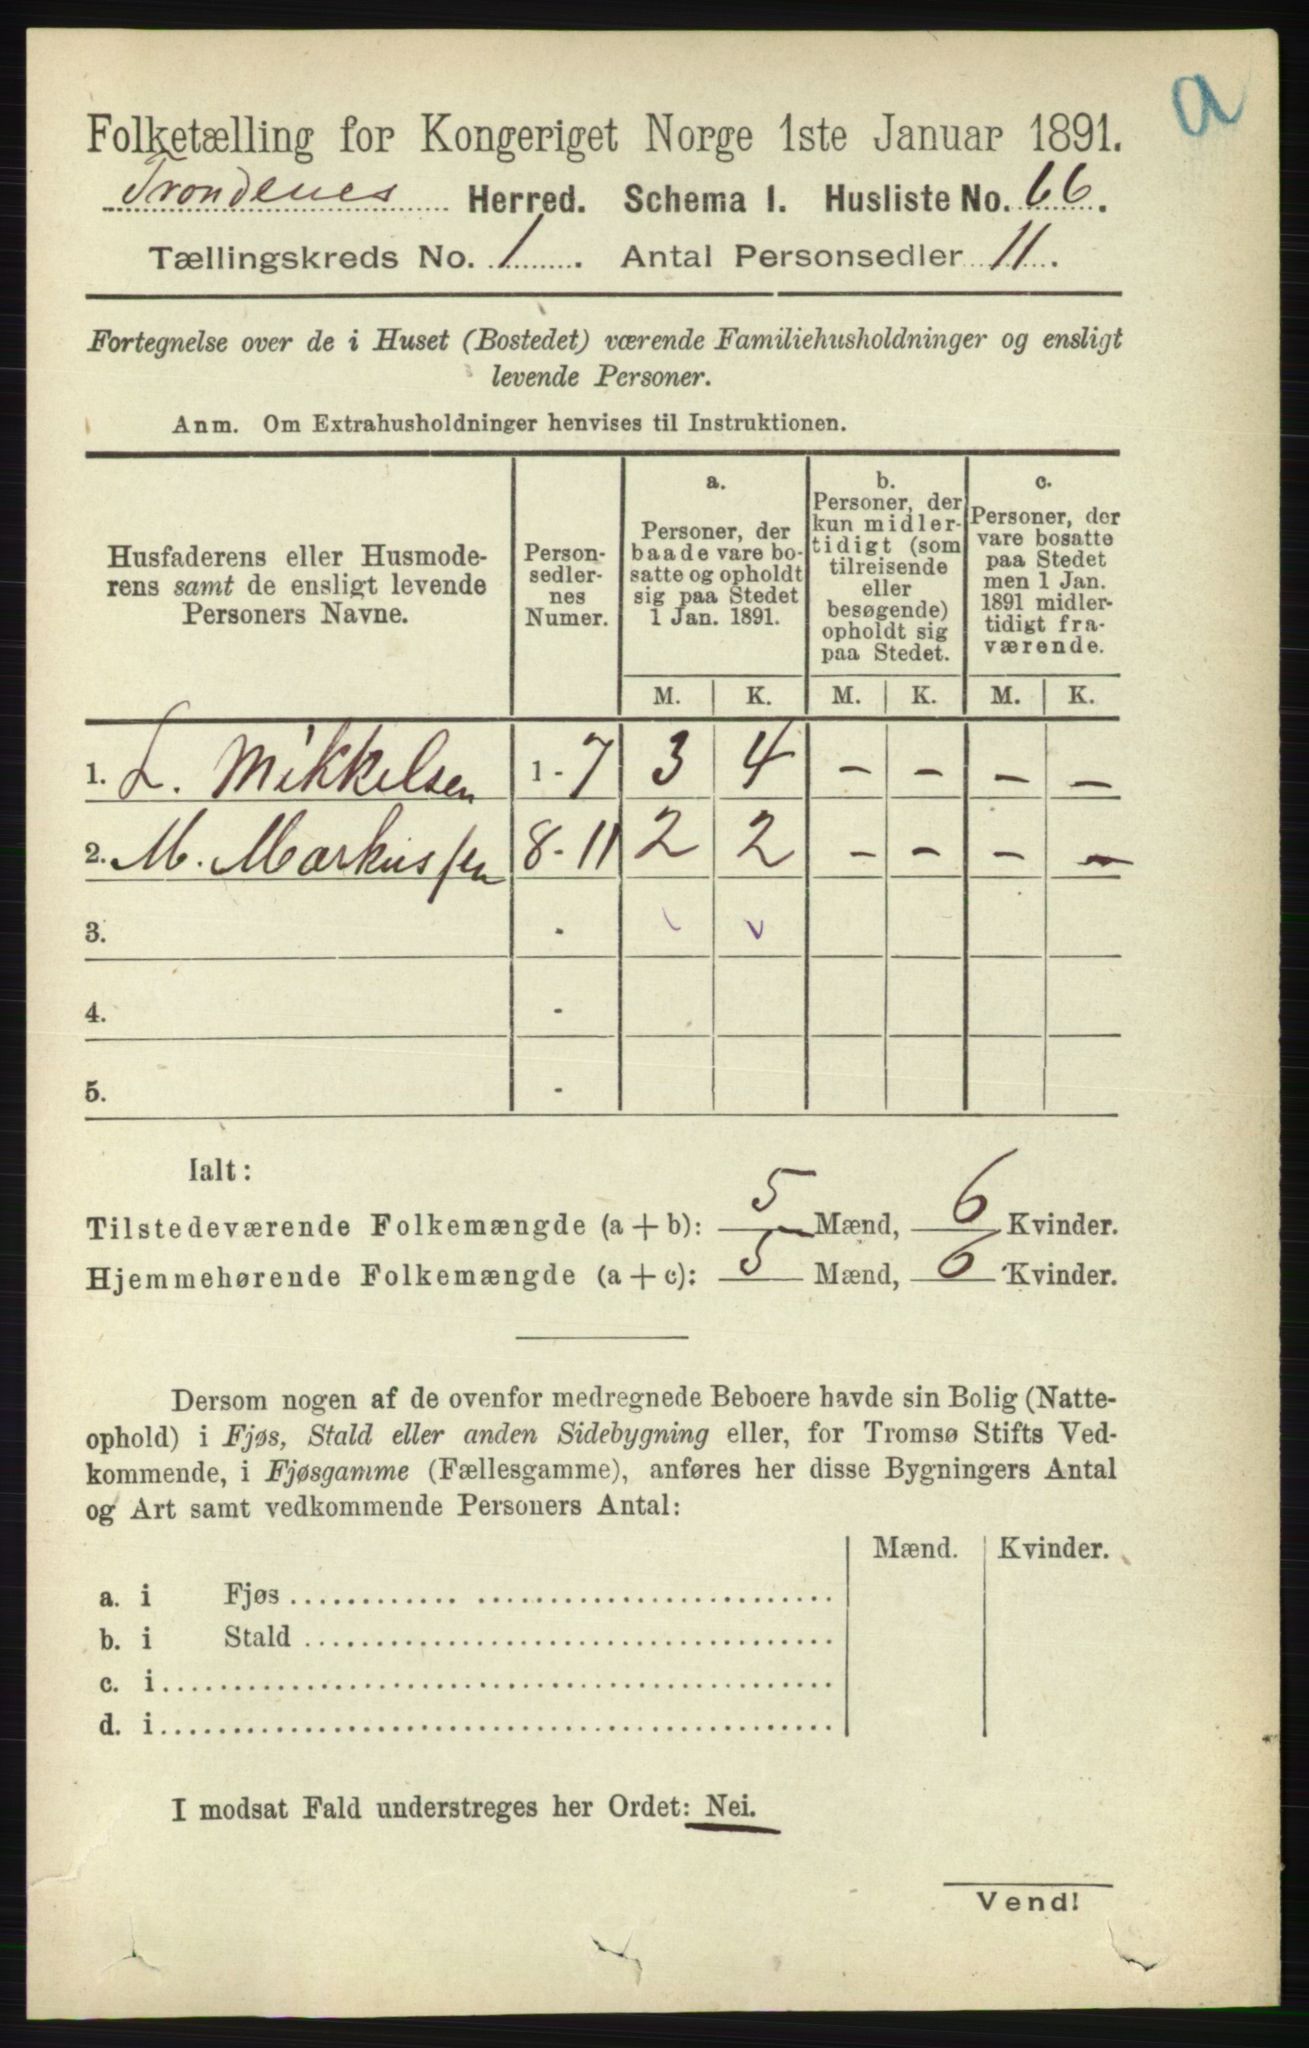 a
Folketælling for Kongeriget Norge 1ste Januar 1891.
Trondenes Herred. Schema I. Husliste No. 66.
Tællingskreds No. 1. Antal Personsedler 11.
Fortegnelse over de i Huset (Bostedet) værende Familiehusholdninger og ensligt
levende Personer.
Anm. Om Extrahusholdninger henvises til Instruktionen.
Husfaderens eller Husmode-
rens samt de ensligt levende
Personers Navne.
Person-
sedler-
nes
Numer.
a.
Personer, der
baade vare bo-
satte og opholdt
sig paa Stedet
1 Jan. 1891.
b.
Personer, der
kun midler-
tidigt (som
tilreisende
eller
besøgende)
opholdt sig
paa Stedet.
c.
Personer, der
vare bosatte
paa Stedet
men 1 Jan.
1891 midler-
tidigt fra-
værende.
M. K. M. K. M. K.
1. L. Mikkelsen 1 - 7 3 4 - - - -
2. M. Markussen 8 - 11 2 2 - - - -
3. -
4. -
5. -
Ialt:
Tilstedeværende Folkemængde (a + b): 5 Mænd, 6 Kvinder.
Hjemmehørende Folkemængde (a + c): 5 Mænd, 6 Kvinder.
Dersom nogen af de ovenfor medregnede Beboere havde sin Bolig (Natte-
ophold) i Fjøs, Stald eller anden Sidebygning eller, for Tromsø Stifts Ved-
kommende, i Fjøsgamme (Fællesgamme), anføres her disse Bygningers Antal
og Art samt vedkommende Personers Antal:
Mænd. Kvinder.
a. i Fjøs
b. i Stald
c. i
d. i
I modsat Fald understreges her Ordet: Nei.
Vend!